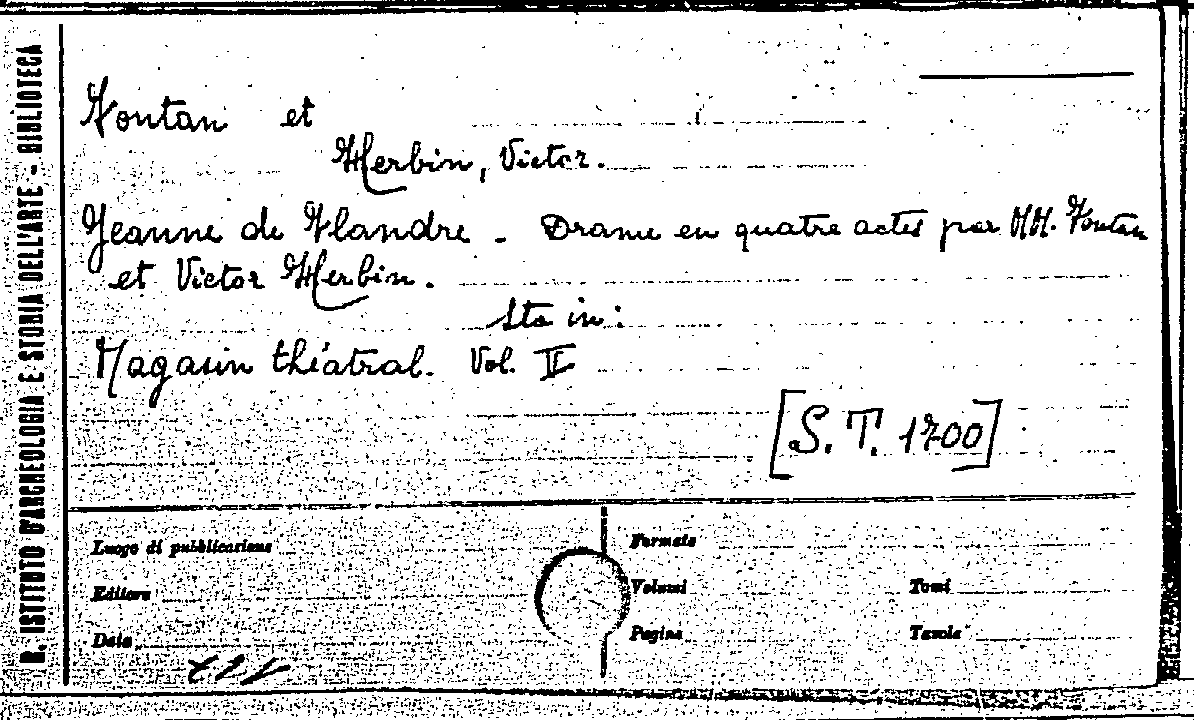 R. ISTITUTO D'ARCHEOLOGIA E STORIA DELL'ARTE - BIBLIOTECA
Fontan et
Herbin, Victor.
Jeanne de Flandre - Drame en quatre actes par MM. Fontan
et Victor Herbin.
Sta in:
Magasin théatral. Vol. II
[S. T. 1700]
Luogo di pubblicazione
Formato
Editore
Volumi
Tomi
Data
Pagine
Tavole